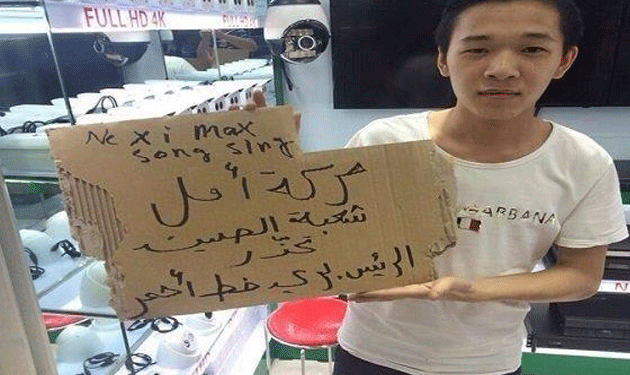 FULL HD 4K
FULL HD 4K
Ne x i max
song sing
حركة أمل
شعبة الصين
تحذّر
الرئس بري خط أحمر
GABBANA